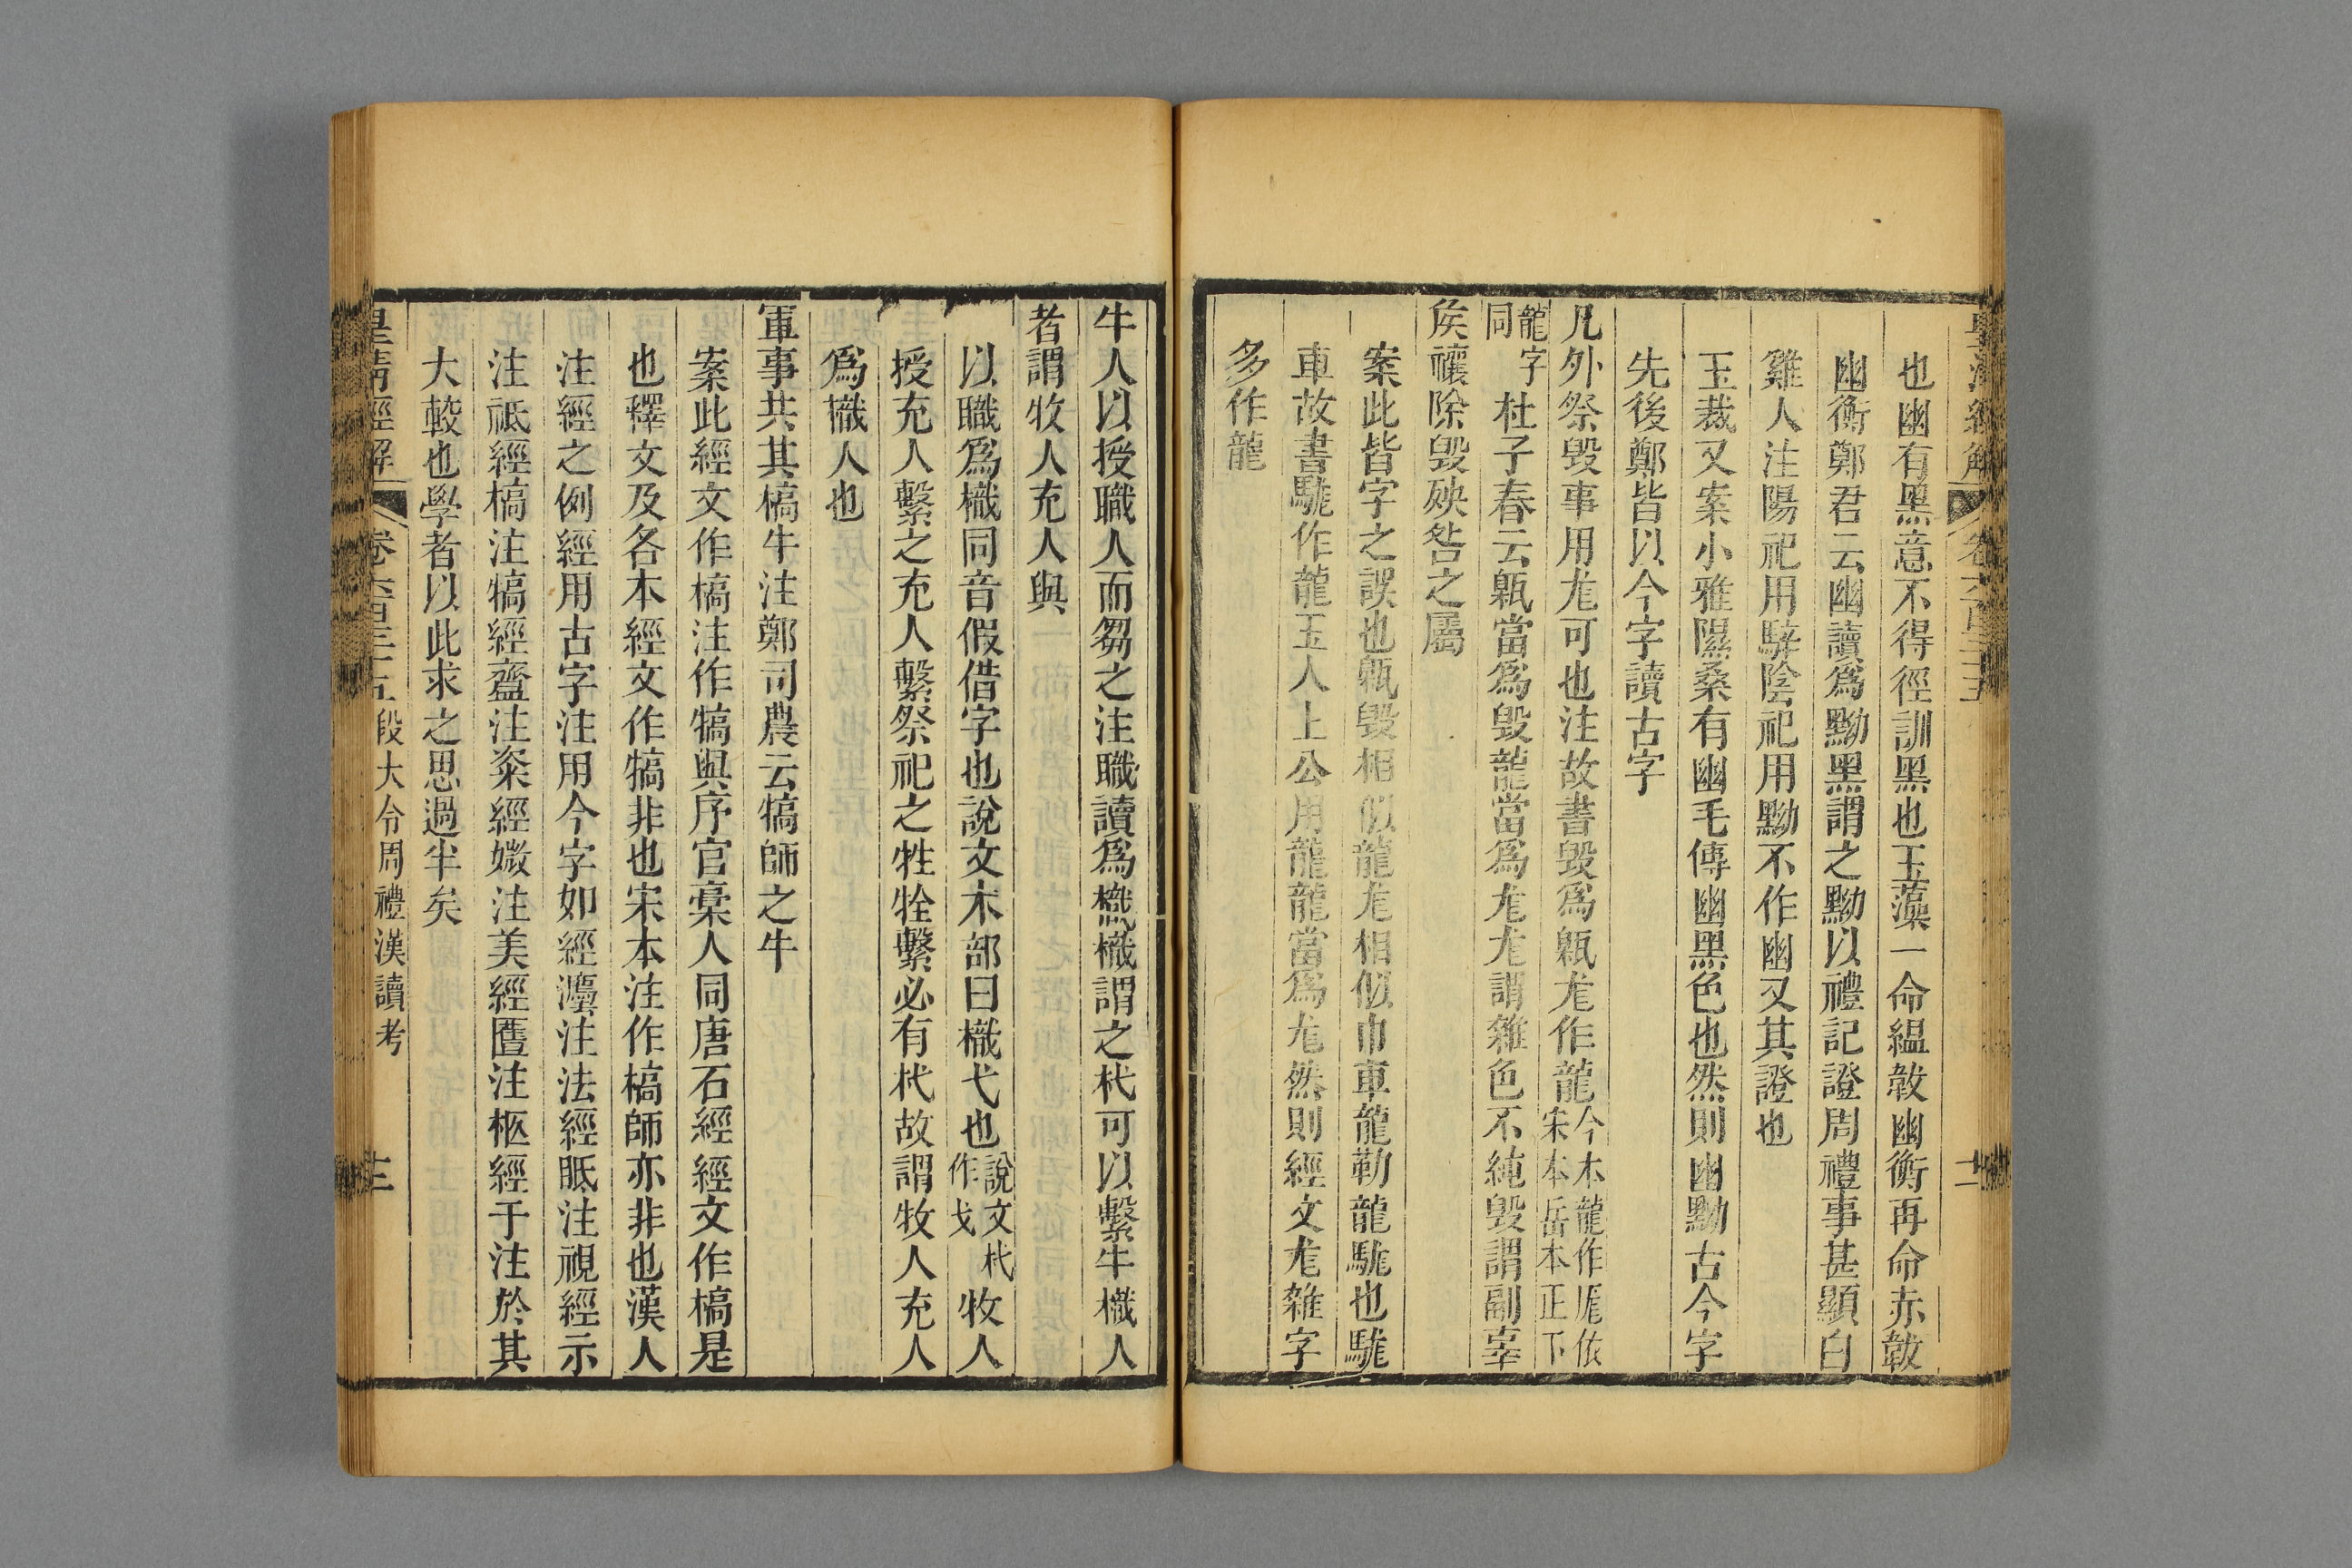 皇清經解
卷六百三十五
十二
也幽有黑意不得徑訓黑也玉藻一命縕韍幽衡再命赤韍
幽衡鄭君云幽讀爲黝黑謂之黝以禮記證周禮事甚顯白
雞人注陽祀用騂陰祀用黝不作幽又其證也
玉裁又案小雅隰桑有幽毛傳幽黑色也然則幽黝古今字
先後鄭皆以今字讀古字
凡外祭毀事用尨可也注故書毀爲甈尨作龍今本龍作厖依宋本岳本正下
龍字同杜子春云甈當爲毀龍當爲尨尨謂雜色不純毀謂副辜
侯禳除毀殃咎之屬
案此皆字之誤也甈毀相似龍尨相似巾車龍勒龍駹也駹
車故書駹作龍玉人上公用龍龍當爲尨然則經文尨雜字
多作龍
牛人以授職人而芻之注職讀爲樴樴謂之杙可以繫牛樴人
者謂牧人充人與
以職爲樴同音假借字也說文木部曰樴弋也說文杙作弋牧人
授充人繫之充人繫祭祀之牲牷繫必有杙故謂牧人充人
爲樴人也
軍事共其槁牛注鄭司農云犒師之牛
案此經文作槁注作犒與序官稾人同唐石經經文作槁是
也釋文及各本經文作犒非也宋本注作槁師亦非也漢人
注經之例經用古字注用今字如經灋注法經眡注視經示
注祇經槁注犒經齍注粢經媺注美經匶注柩經于注於其
大較也學者以此求之思過半矣
皇清經解
卷六百三十五
段大令周禮漢讀考
十三